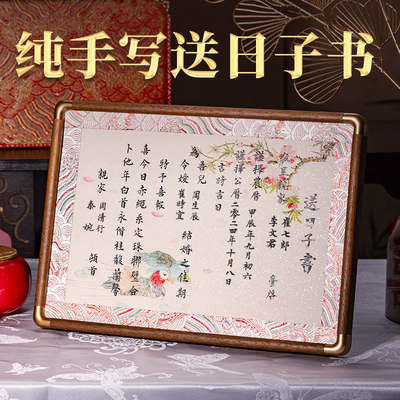 纯手写送日子书
送日子書
親家 崔七郎
李文君 臺啓
謹擇農曆 甲辰年九月初六
謹擇公曆 二〇二四年十月八日
吉時吉日
為吾兒 周生辰
令嫒 崔時宜 結婚之佳期
特予喜報
喜今日赤绳系定珠聯璧合
卜他年白首永偕桂馥蘭馨
親家 周清行
秦婉 頓首